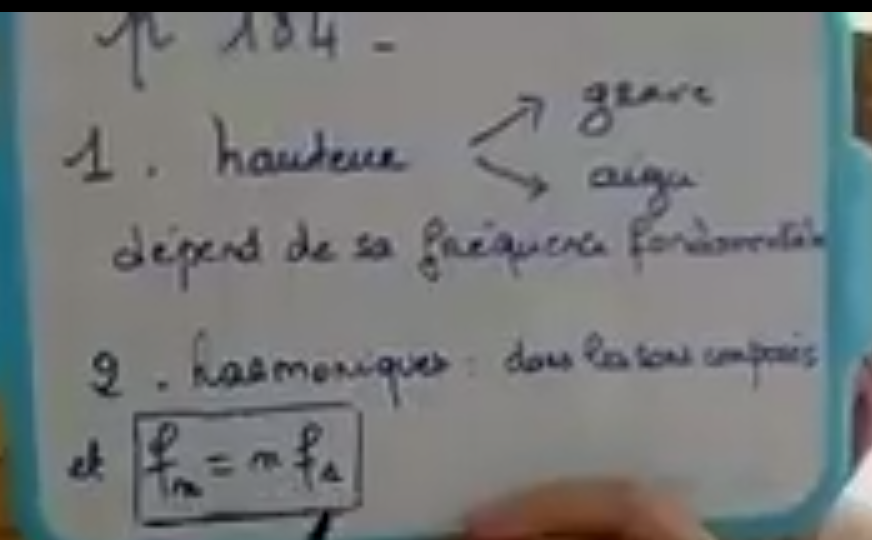 p 184 -
1. hauteur → grave
→ aigu
dépend de sa fréquence fondamentale
2. harmoniques : dans les sons composés
et fn = n f1